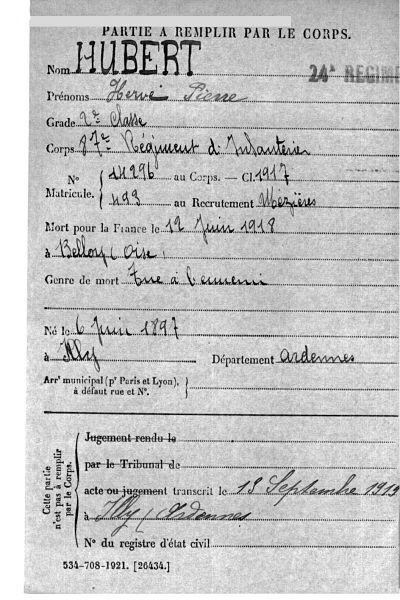 PARTIE A REMPLIR PAR LE CORPS.
Nom HUBERT
24e RÉGIME
Prénoms Hervé Pierre
Grade 2e Classe
Corps 87e Régiment d'Infanterie
No Matricule. 14296 au Corps. — Cl. 1917
493 au Recrutement Mézières
Mort pour la France le 12 Juin 1918
à Belloy (Oise)
Genre de mort Tué à l'ennemi
Né le 6 Juin 1897
à Illy Département Ardennes
Arrt municipal (pr Paris et Lyon),
à défaut rue et No.
Cette partie n'est pas à remplir par le Corps.
Jugement rendu le
par le Tribunal de
acte ou jugement transcrit le 13 Septembre 1919
à Illy (Ardennes
No du registre d'état civil
534-708-1921. [26434.]